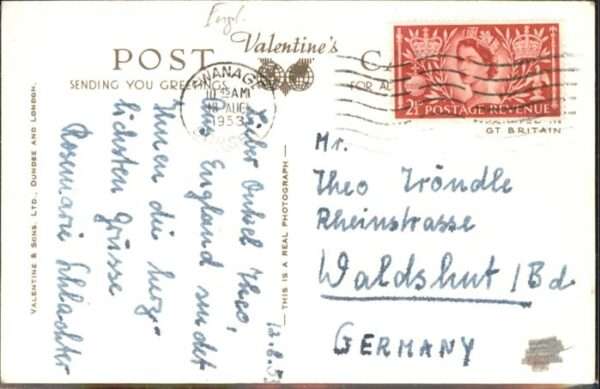 Engl.
POST Valentine's
SENDING YOU GREETINGS
FOR
SWANAGE
10 15 AM
18 AUG
1953
2½ POSTAGE REVENUE
GT BRITAIN
12.8.53
Lieber Onkel Theo,
Aus England sendet
Ihnen die herz-
lichsten Grüsse
Rosmarie Schlachter
VALENTINE & SONS, LTD., DUNDEE AND LONDON.
THIS IS A REAL PHOTOGRAPH
Mr.
Theo Tröndle
Rheinstrasse
Waldshut /Bd
GERMANY